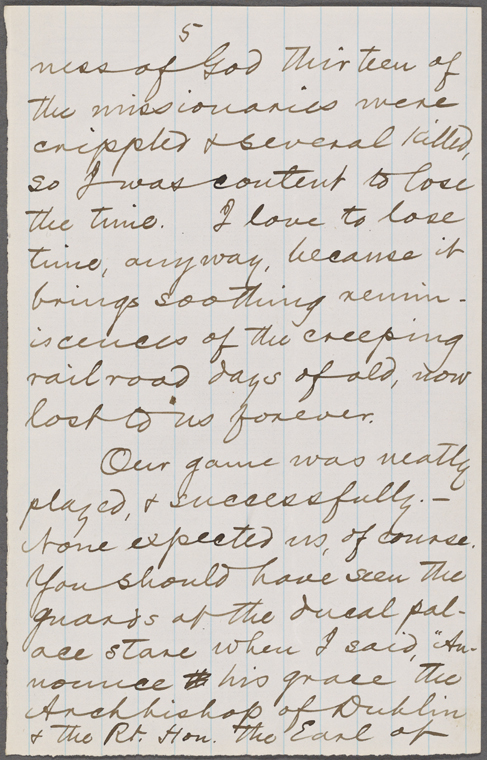 5
ness of God thirteen of
the missionaries were
crippled & several killed,
so I was content to lose
the time. I love to lose
time, anyway, because it
brings soothing remin-
iscences of the creeping
railroad days of old, now
lost to us forever.
Our game was neatly
played, & successfully.—
None expected us, of course.
You should have seen the
guards at the ducal pal-
ace stare when I said, "An-
nounce his grace the
Archbishop of Dublin
& the Rt. Hon. the Earl of